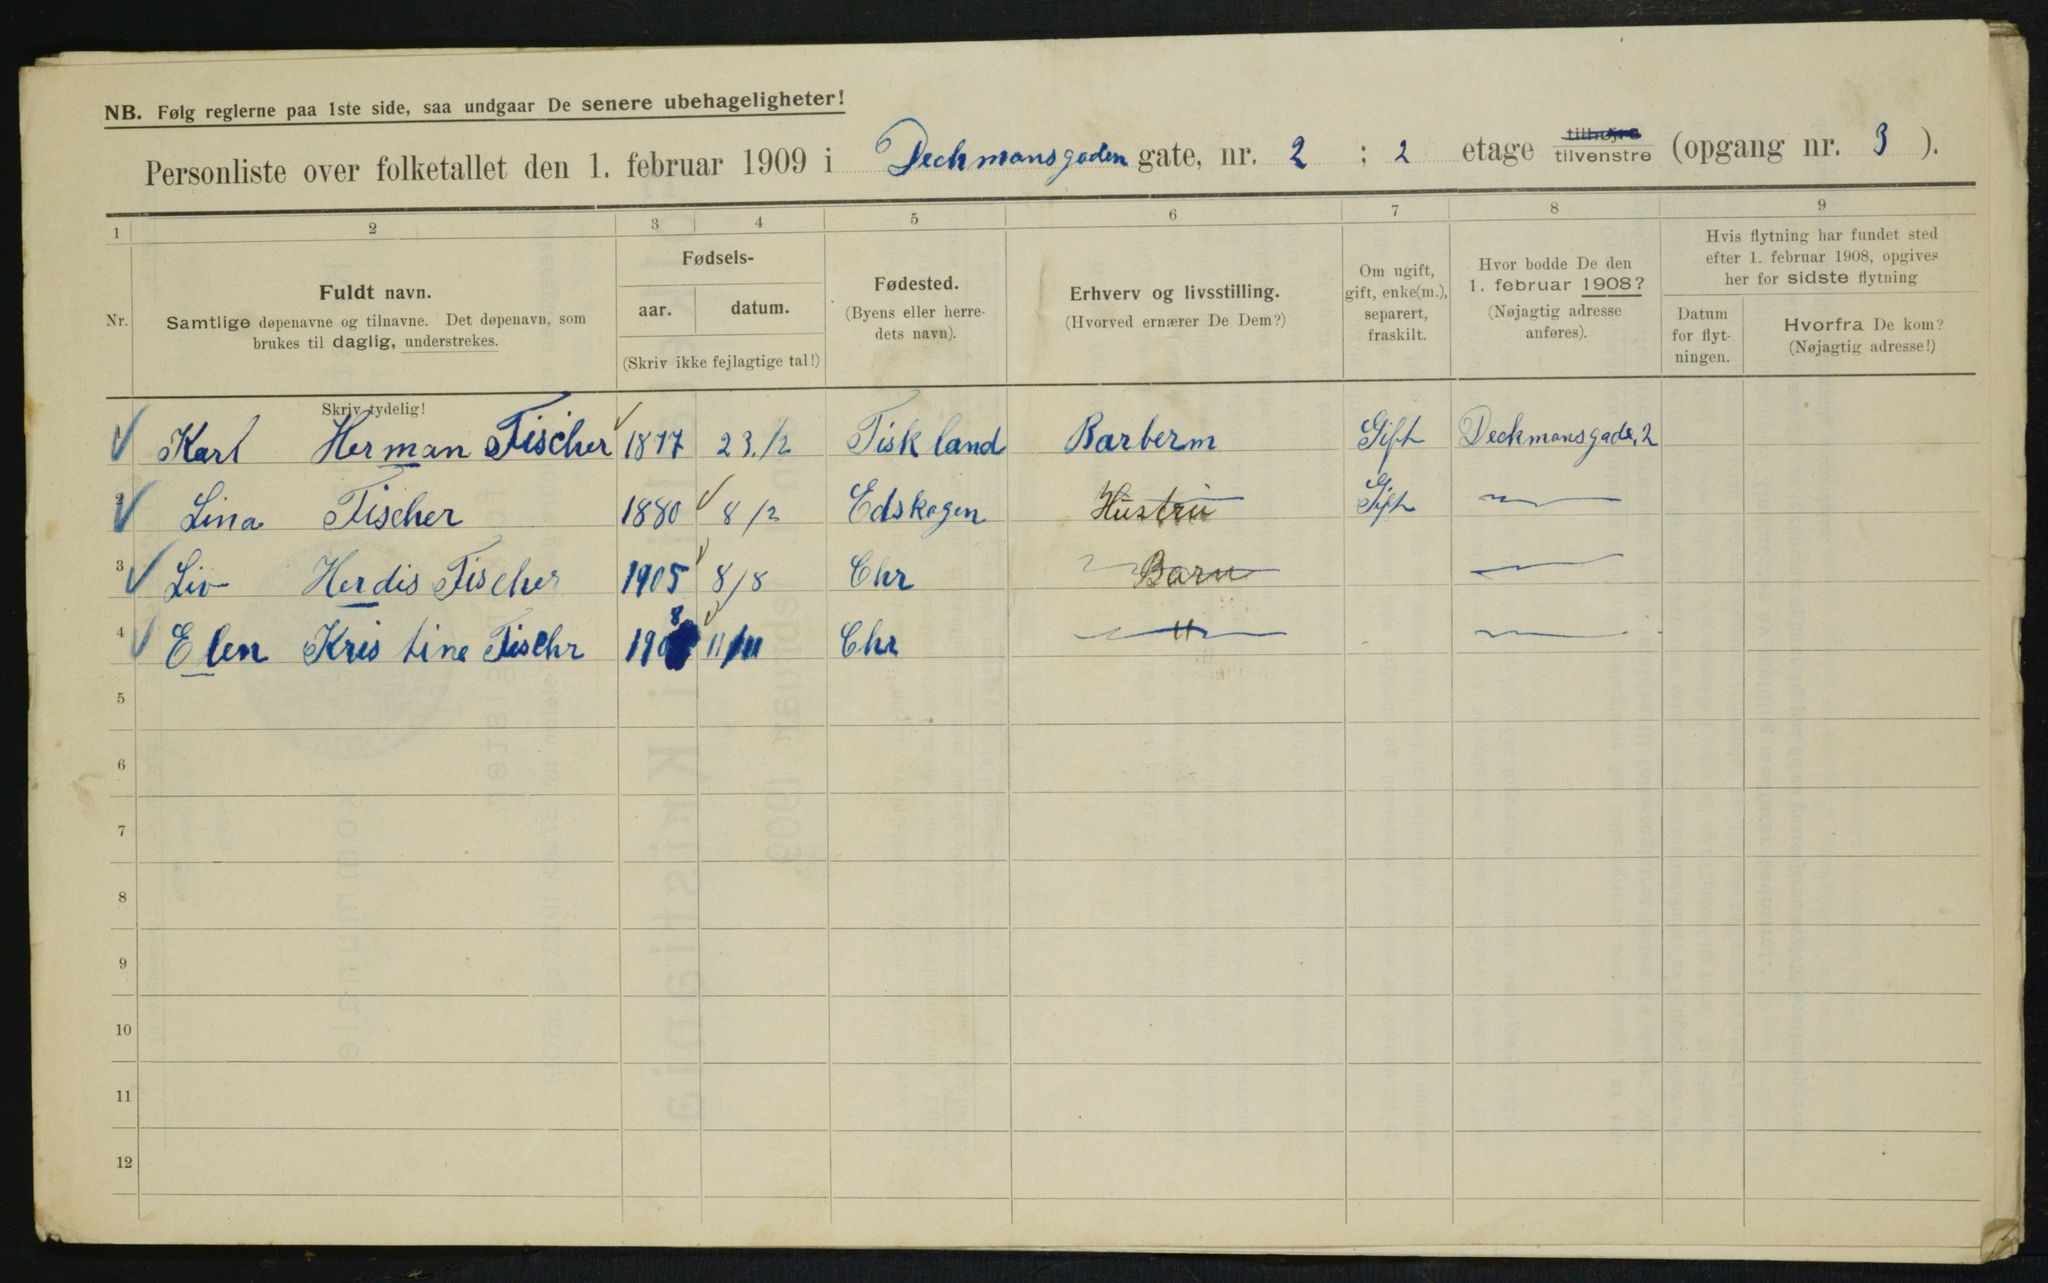 NB. Følg reglerne paa 1ste side, saa undgaar De senere ubehageligheter!
Personliste over folketallet den 1. februar 1909 i Deckmansgaden gate, nr. 2 ; 2 etage tilhøjre tilvenstre (opgang nr. 3 ).
1 2 3 4 5 6 7 8 9
Nr.
Fuldt navn.
Samtlige døpenavne og tilnavne. Det døpenavn, som
brukes til daglig, understrekes.
Skriv tydelig!
Fødsels-
aar. datum.
(Skriv ikke fejlagtige tal!)
Fødested.
(Byens eller herre-
dets navn).
Erhverv og livsstilling.
(Hvorved ernærer De Dem?)
Om ugift,
gift, enke(m.),
separert,
fraskilt.
Hvor bodde De den
1. februar 1908?
(Nøjagtig adresse
anføres).
Hvis flytning har fundet sted
efter 1. februar 1908, opgives
her for sidste flytning
Datum
for flyt-
ningen.
Hvorfra De kom?
(Nøjagtig adresse!)
Karl Herman Fischer 1877 23./2 Tiskland Barberm Gift Deckmansgade, 2
2 Lina Fischer 1880 8/2 Edskogen Hustru Gift
3 Liv Herdis Fischer 1905 8/8 Chr Barn
4 Elen Kristine Fischr 1908 11/11 Chr "
5
6
7
8
9
10
11
12